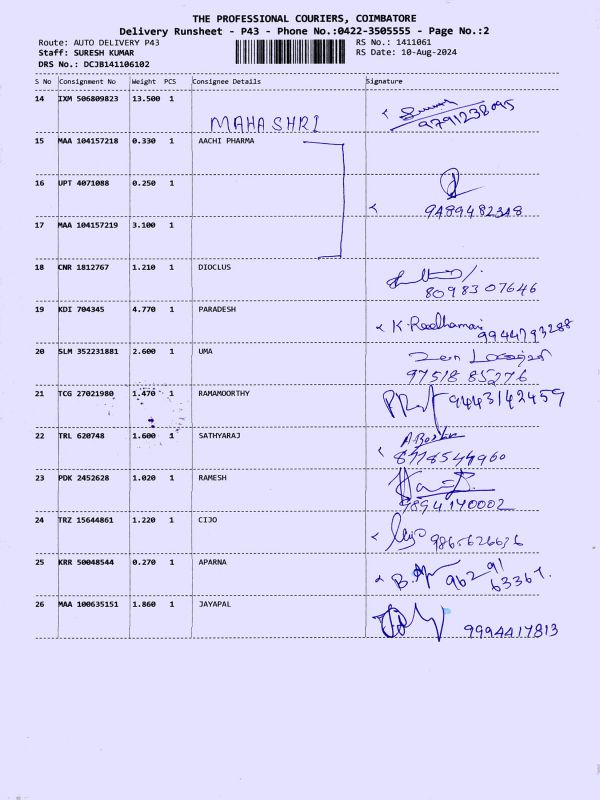 THE PROFESSIONAL COURIERS, COIMBATORE
Delivery Runsheet - P43 - Phone No.:0422-3505555 - Page No.:2
Route: AUTO DELIVERY P43 RS No.: 1411061
Staff: SURESH KUMAR RS Date: 10-Aug-2024
DRS No.: DCJB141106102
S No Consignment No Weight PCS Consignee Details Signature
14 IXM 506809823 13.500 1 MAHASHRI 9791238095
15 MAA 104157218 0.330 1 AACHI PHARMA
16 UPT 4071088 0.250 1 9489482348
17 MAA 104157219 3.100 1
18 CNR 1812767 1.210 1 DIOCLUS 8098307646
19 KDI 704345 4.770 1 PARADESH K. Radhamani 9944793288
20 SLM 352231881 2.600 1 UMA 97518 85276
21 TCG 27021980 1.470 1 RAMAMOORTHY 9443142459
22 TRL 620748 1.600 1 SATHYARAJ 8778544960
23 PDK 2452628 1.020 1 RAMESH 9894140002
24 TRZ 15644861 1.220 1 CIJO
25 KRR 50048544 0.270 1 APARNA 96291
63367
26 MAA 100635151 1.860 1 JAYAPAL 9994417813